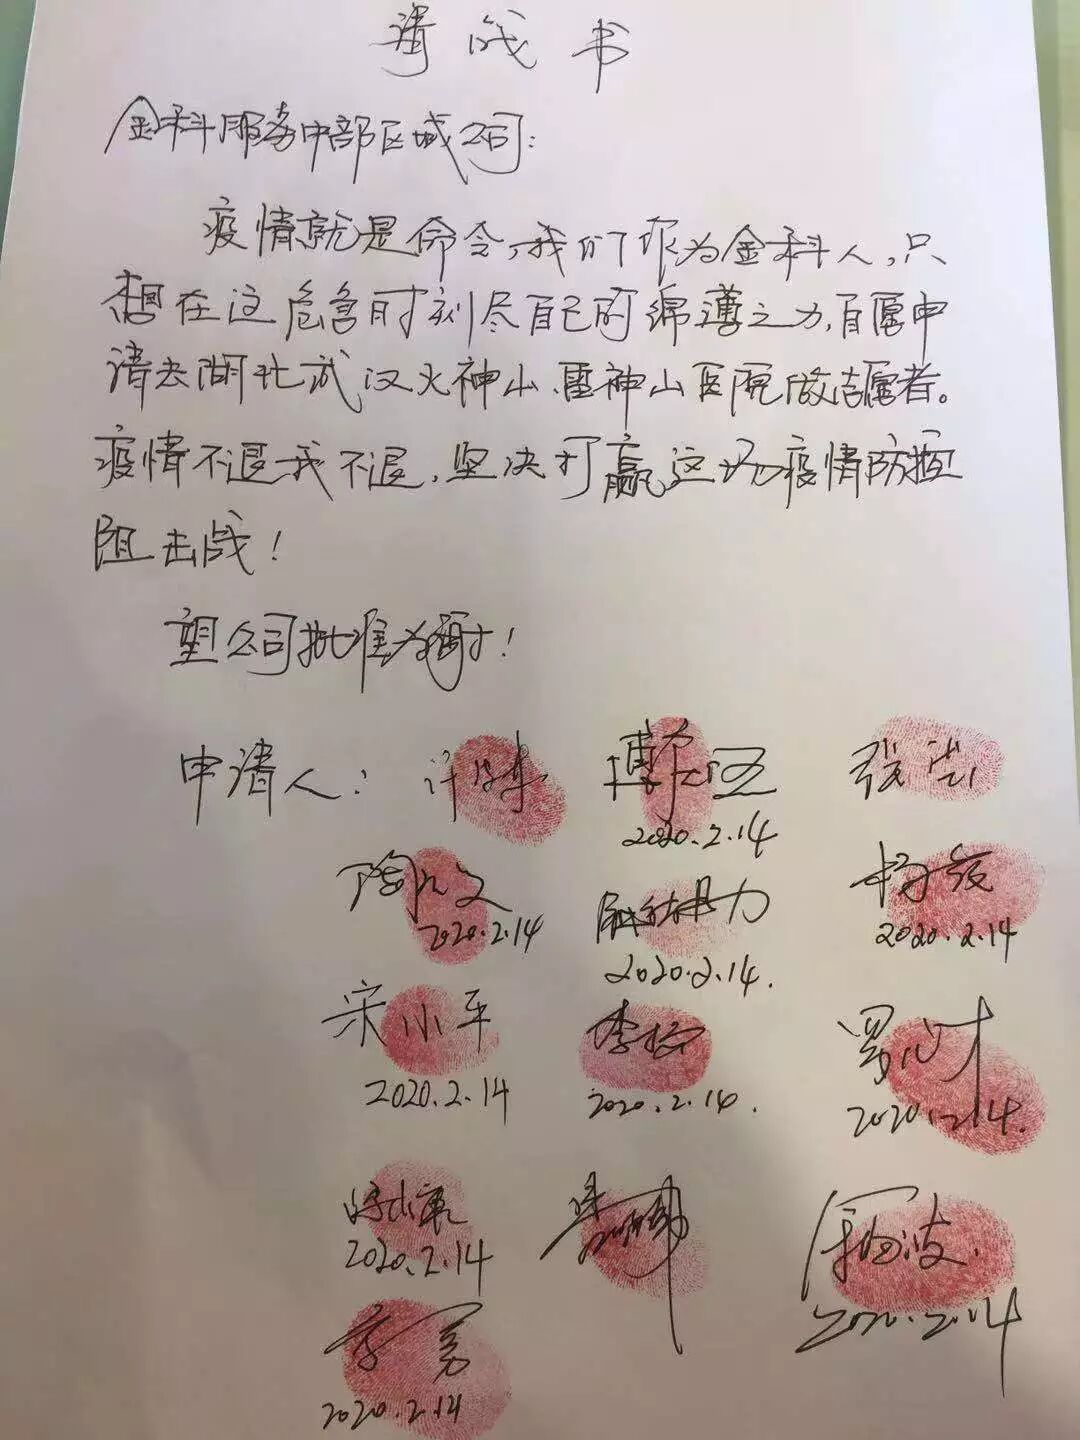 请战书
金科服务中部区域公司:
疫情就是命令,我们作为金科人,只
想在这危急时刻尽自己的绵薄之力,自愿申
请去湖北武汉火神山、雷神山医院做志愿者。
疫情不退我不退,坚决打赢这场疫情防控
阻击战!
望公司批准为谢!
申请人: 张
2020.2.14
陶 文 杨
2020.2.14 2020.2.14 2020.2.14
宋小平 李 罗
2020.2.14 2020.2.14. 2020.2.14.
2020.2.14 波
2020.2.14
李勇
2020.2.14